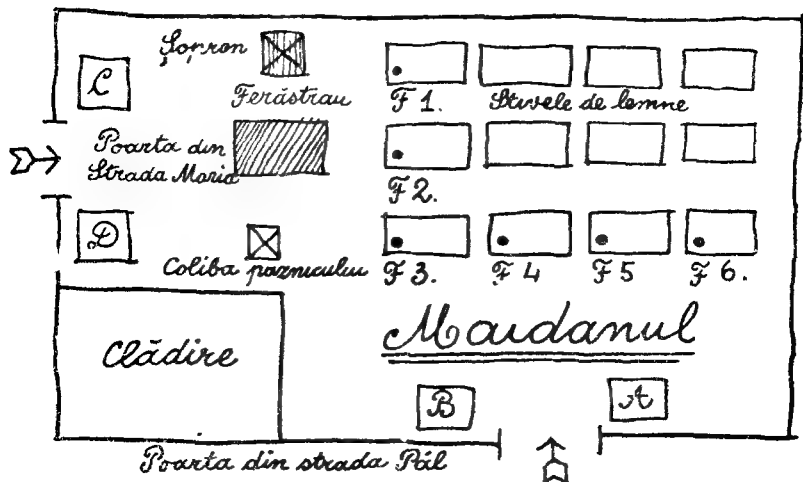 Șopron
C
Ferăstrau
F 1.
Stivele de lemne
Poarta din
Strada Maria
F 2.
D
Coliba paznicului
F 3.
F 4
F 5
F 6.
Maidanul
Clădire
B
A
Poarta din strada Pál